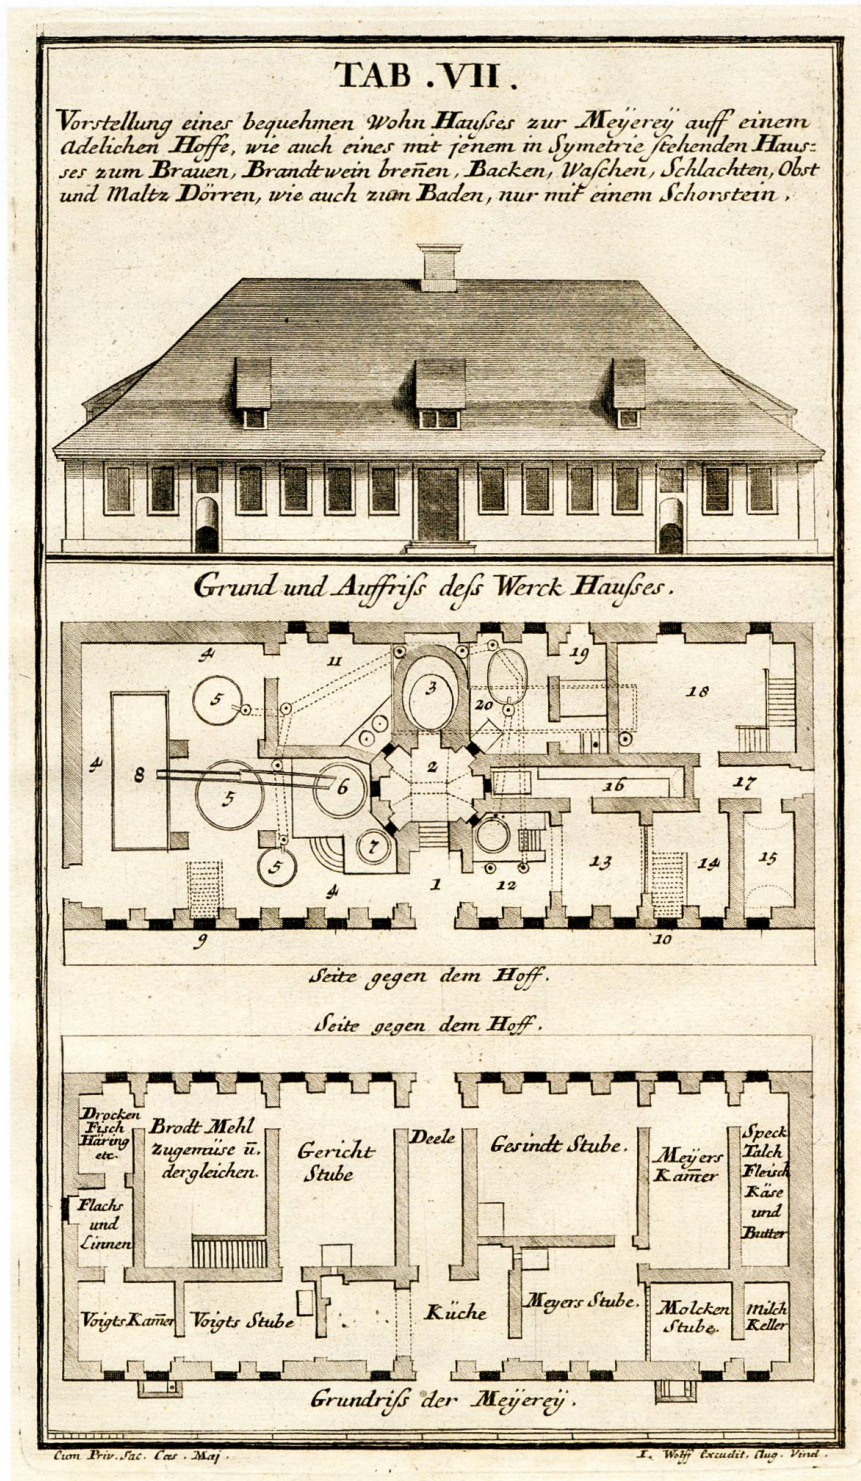 TAB .VII.
Vorstellung eines bequehmen Wohn Haußes zur Meÿereÿ auff einem
Adelichen Hoffe, wie auch eines mit jenem in Symetrie stehenden Haus=
ses zum Brauen, Brandtwein breñen, Backen, Waschen, Schlachten, Obst
und Maltz Dörren, wie auch zum Baden, nur mit einem Schorstein.
Grund und Auffriss dess Werck Hausses.
4
11
3
19
5
20
18
4
8
2
5
6
16
17
7
5
13
14
15
4
1
12
9
10
Seite gegen dem Hoff.
Seite gegen dem Hoff.
Drocken
Fisch
Häring
etc.
Brodt Mehl
Zugemüse ū.
dergleichen.
Gericht
Stube
Deele
Gesindt Stube.
Meÿers
Kam̄er
Speck
Talch
Fleisch
Käse
und
Butter
Flachs
und
Linnen
Voigts Kam̄er
Voigts Stube
Küche
Meyers Stube.
Molcken
Stube.
Milch
Keller
Grundriss der Meÿereÿ.
Cum Priv. Sac. Cæs. Maj.
I. Wolff Excudit. Aug. Vind.